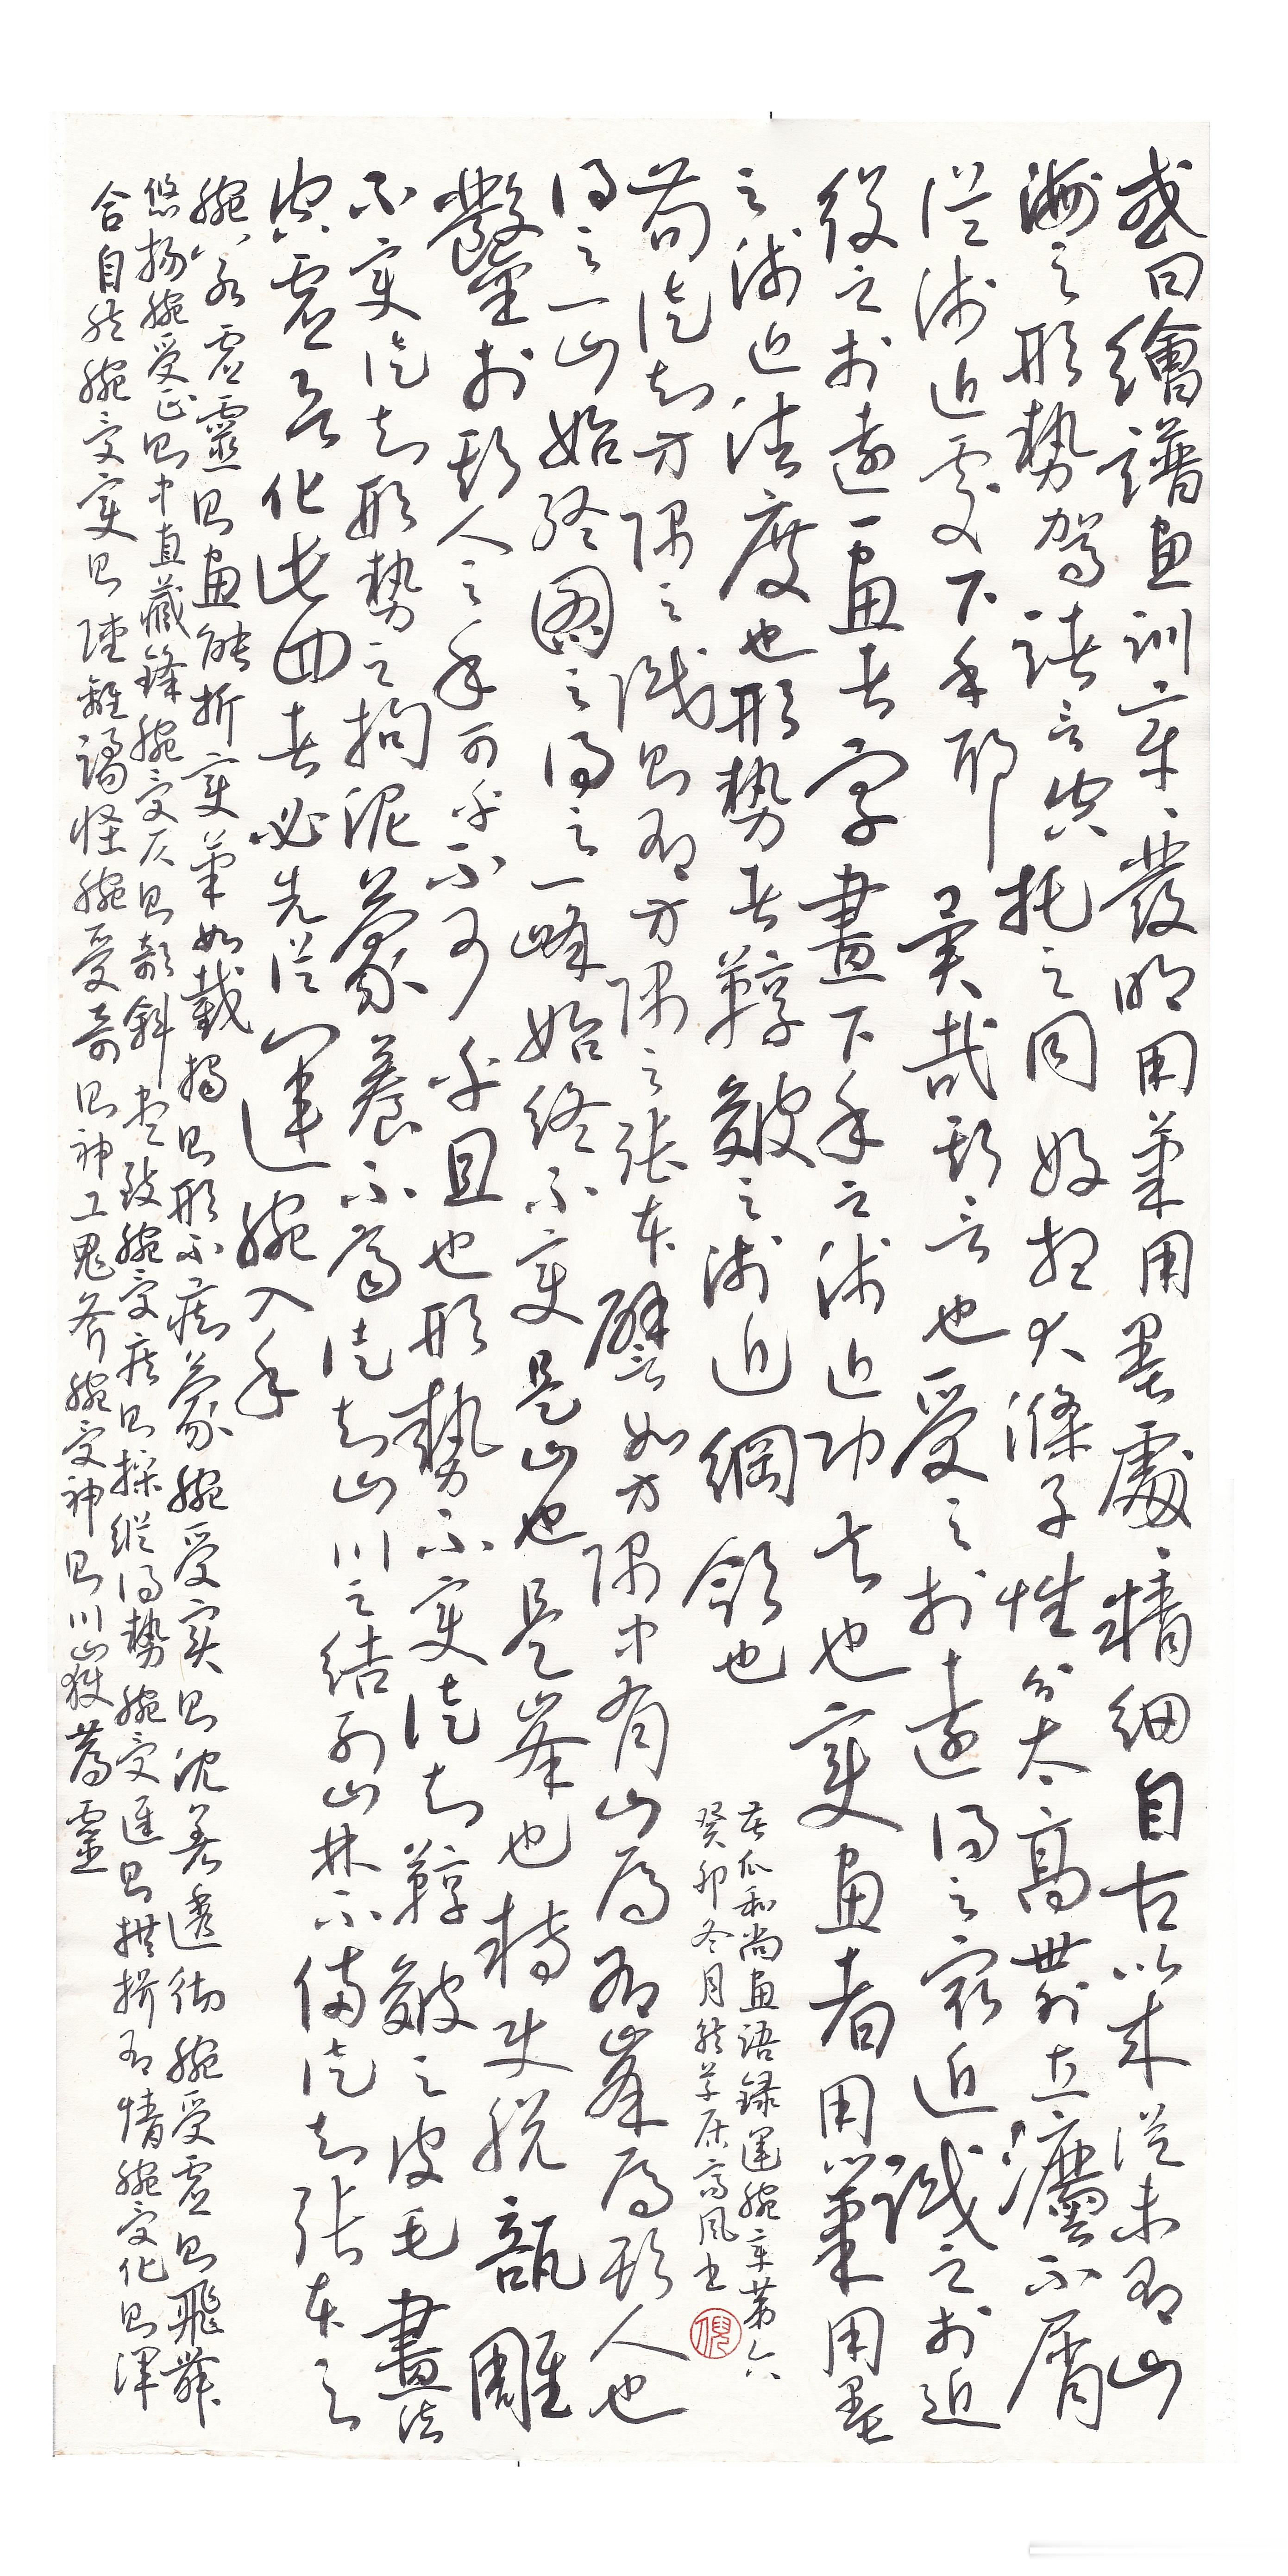 或曰繪譜畫訓章々發明用筆用墨處々精細自古以來從未有山
海之形勢駕諸言空托之同好想大滌子性分太高世外立灋不屑
從淺近處下手耶異哉斯言也受之於遠得之最近識之於近
役之於遠一畫者字畫下手之淺近功夫也變畫者用筆用墨
之淺近法度也形勢者鞟皴之淺近綱領也
苟徒知方隅之識則有方隅之張本譬如方隅中有山焉有峯焉斯人也
得之一山始終圖之得之一峰始終不變是山也是峯也轉使脫瓿雕
鑿於斯人之手可乎不可乎且也形勢不變徒知鞟皴之皮毛畫法
不變徒知形勢之拘泥蒙養不齊徒知山川之結列山林不備徒知張本之
空虛欲化此四者必先從運腕入手
腕若虛靈則畫能折變筆如截揭則形不痴蒙腕受實則沈着透徹腕受虛則飛舞
悠揚腕受正則中直藏鋒腕受仄則欹斜盡致腕受疾則操縱得勢腕受遲則拱揖有情腕受化則渾
合自然腕受變則陸離譎怪腕受奇則神工鬼斧腕受神則川嶽薦靈
苦瓜和尚畫語錄運腕章第六
癸卯冬月 草居高風書
倪